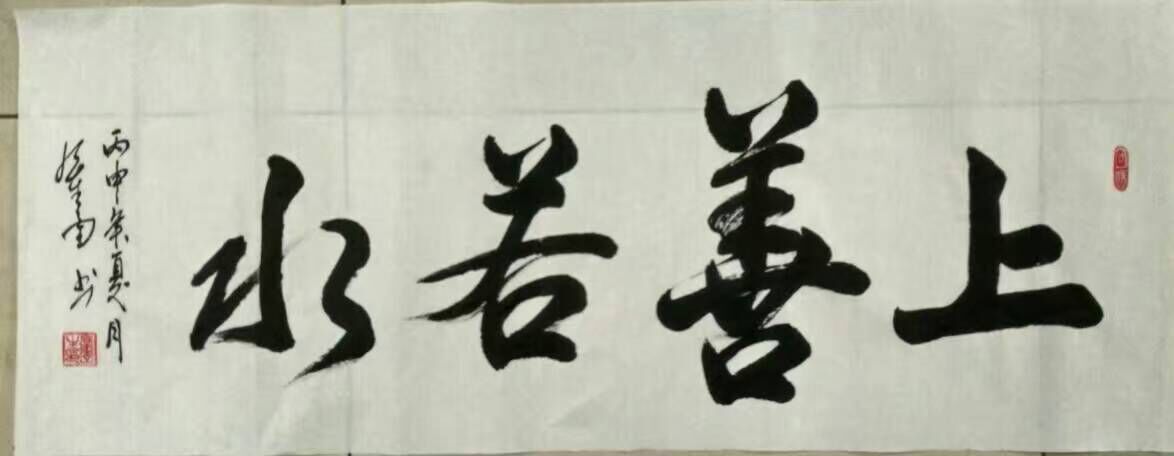 上善若水
丙申年夏月
书